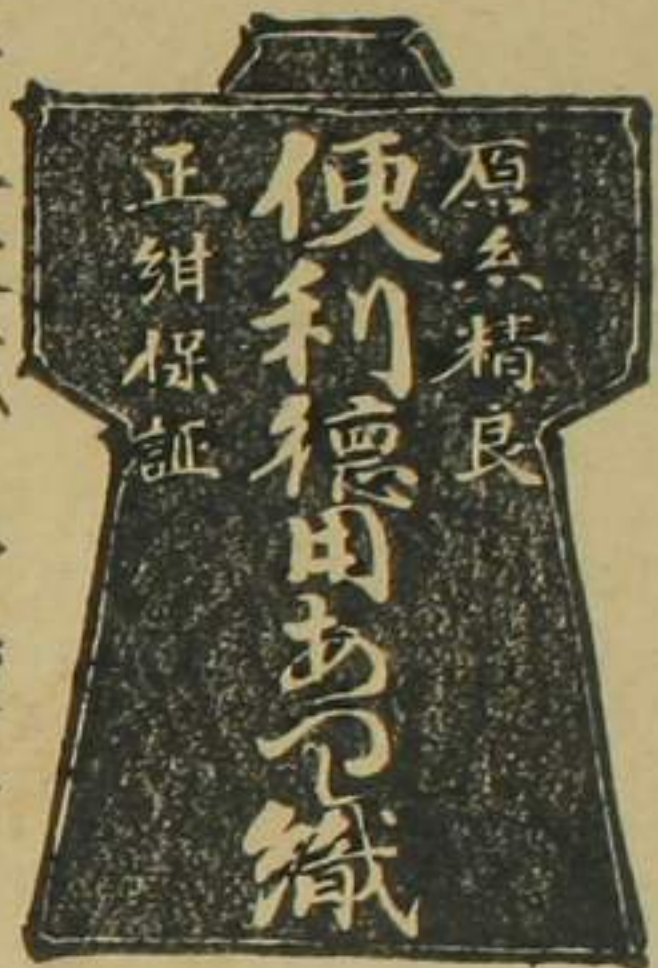 原糸精良
便利徳用あつし織
正紺保証